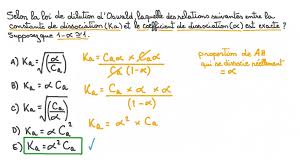 Selon la loi de dilution d'Ostwald, laquelle des relations suivantes entre la
constante de dissociation (Ka) et le coefficient de dissociation (α) est exacte ?
Supposez que 1-α ≃ 1.
A) Ka = √(α/Ca)
B) Ka = α Ca
C) Ka = √(α/Ca)
D) Ka = α Ca²
E) Ka = α² Ca
Ka = Ca α × Ca α / Ca (1-α)
Ka = Ca × α × α / (1-α)
Ka = α² × Ca
proportion de AH
qui se dissocie réellement
= α